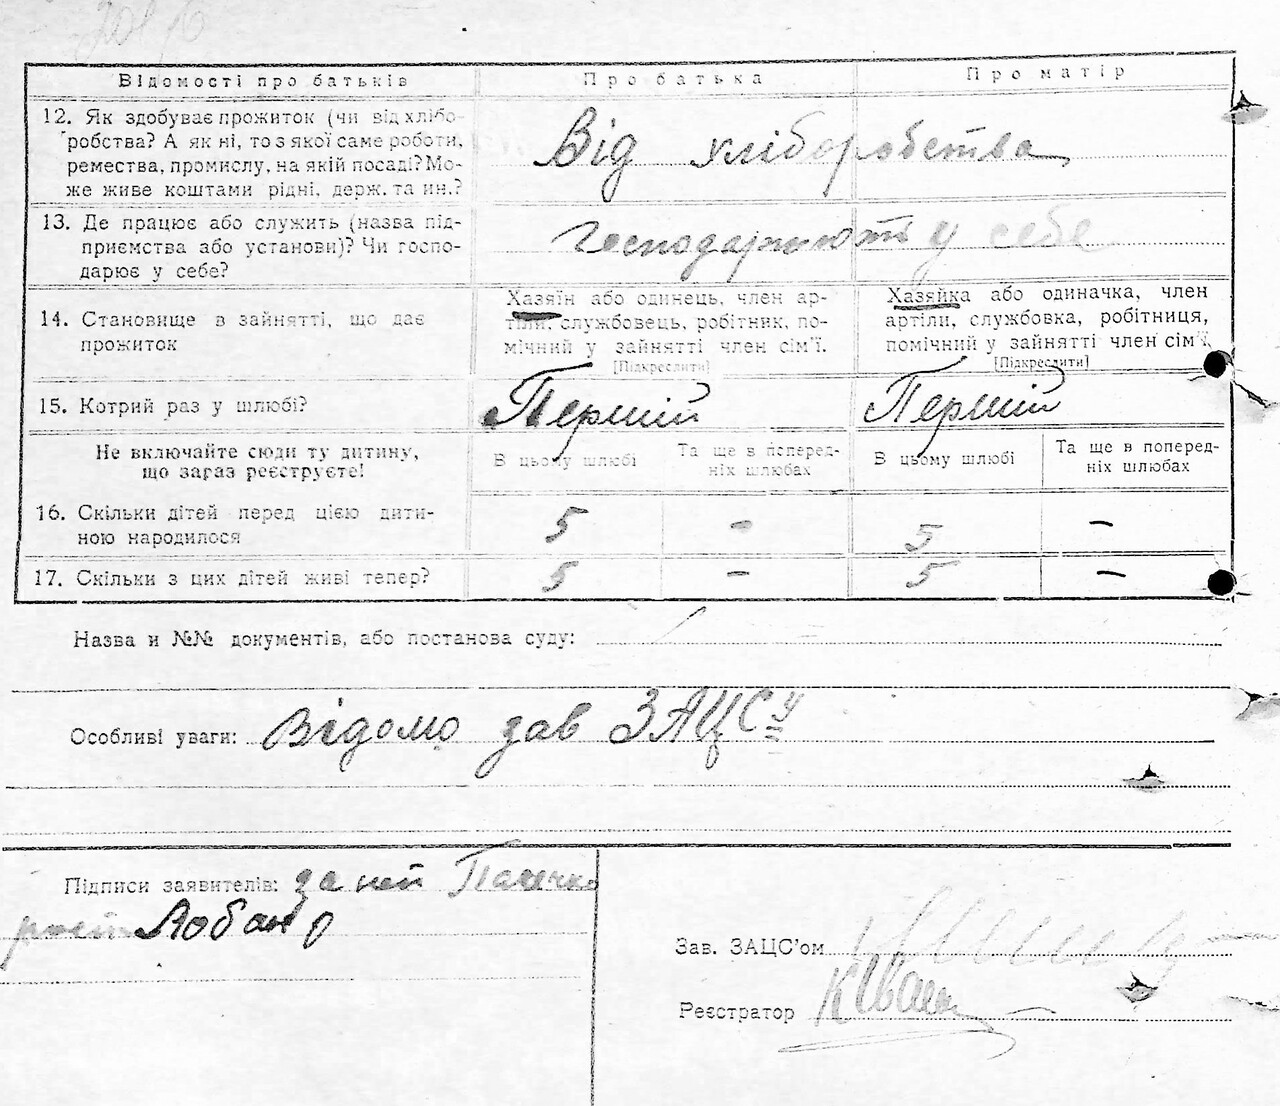 Відомості про батьків
Про батька
Про матір
12. Як здобуває прожиток (чи від хлібо-
робства? А як ні, то з якої саме роботи,
ремества, промислу, на якій посаді? Мо-
же живе коштами рідні, держ. та ин.?
Від хліборобства
13. Де працює або служить (назва під-
приємства або установи)? Чи госпо-
дарює у себе?
Господарюють у себе
14. Становище в зайнятті, що дає
прожиток
Хазяїн або одинець, член ар-
тіли, службовець, робітник, по-
мічний у зайнятті член сім'ї.
[Підкреслити]
Хазяйка або одиначка, член
артіли, службовка, робітниця,
помічний у зайнятті член сім'ї.
[Підкреслити]
15. Котрий раз у шлюбі?
Перший
Перший
Не включайте сюди ту дитину,
що зараз реєструєте!
В цьому шлюбі
Та ще в поперед-
ніх шлюбах
В цьому шлюбі
Та ще в поперед-
ніх шлюбах
16. Скільки дітей перед цією дити-
ною народилося
5
-
5
-
17. Скільки з цих дітей живі тепер?
5
-
5
-
Назва и №№ документів, або постанова суду:
Особливі уваги: Відомо зав ЗАЦСу
Підписи заявителів: за неп
Зав. ЗАЦС'ом
Реєстратор